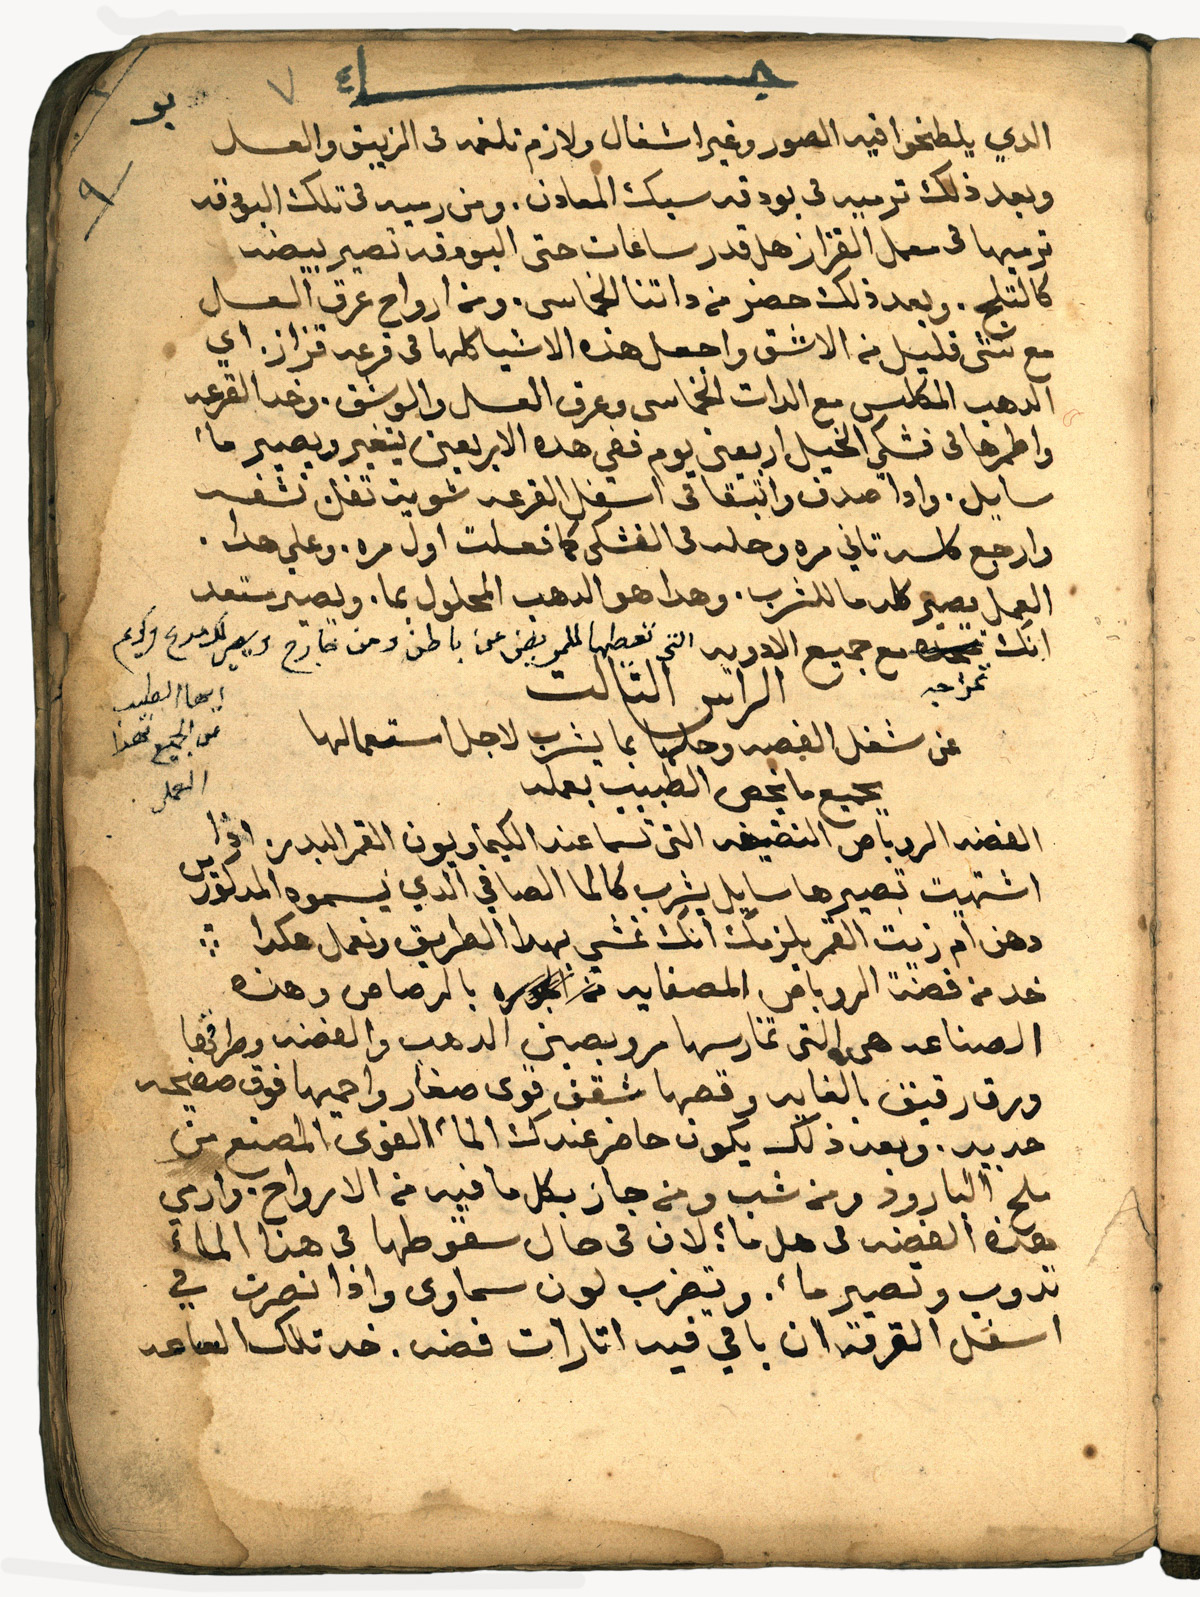 بو ٧ ٤
٩
الدي يلطخوا فيه الصور وغير اشغال ولازم تلغمه فى الزيبق والعسل
وبعد ذلك ترميه فى بودقه سبك المعادن. ومن رميه فى تلك البودقه
ترميها فى معمل القزاز هل قدر ساعات حتى البودقه تصير بيضه
كالتلج. وبعد ذلك حضر من داتنا الخماسى. ومن ارواح عرق العسل
مع شى قليل من الاشق واجعل هذه الاشيا كلها فى قرعه قزاز. اي
الدهب المكلس مع الدات الخماسى وعرق العسل والوشق. وخد القرعه
واطمرها فى فشكي الخيل اربعين يوم ففي هده الاربعين يتغير ويصير ماء
سايل. وادا صدف واتبقا فى اسفل القرعه شوية تفل نشفه
وارجع كلسه تاني مره وحله فى الفشكى كما فعلت اول مره. وعلى هدا.
العمل يصير كله ما للشرب. وهدا هو الدهب المحلول بما. ويصير مستعد
انك مع جميع الادويه التى تعطيها للمريض من باطن ومن خارج
تمزاجه
ايها الطبيب
من الجميع بهذا
العمل
الراس التالت
عن شغل الفضه وحلها بما يشرب لاجل استعمالها
بجميع ما يخص الطبيب بعمله
الفضه الروباص النضيفه التى تسما عند الكيماويون القمر البدر. اذا
اشتهيت تصيرها سايل يشرب كالما الصافي الدي يسموه المدكورين
دهن ام زيت القمر يلزمك انك تمشي بهدا الطريق وتعمل هكدا
خد من فضة الروباص المصفايه من بالرصاص وهذه
الصناعه هى التى تمارسها مروبصين الدهب والفضه وطرقها
ورق رقيق بالغايه وقصها شقف قوى صغار واحميها فوق صفيحه
حديد. وبعد ذلك يكون حاضر عندك الماء القوى المصنع من
ملح البارود ومن شب ومن جاز بكل ما فيه من الارواح. وارمي
هذه الفضه فى هل ماء لان فى حال سقوطها فى هذا الماء
تدوب وتصير ماء. ويضرب لون سماوى واذا نصرت في
اسفل القرعة ان باقي فيه اتارات فضه. خد تلك